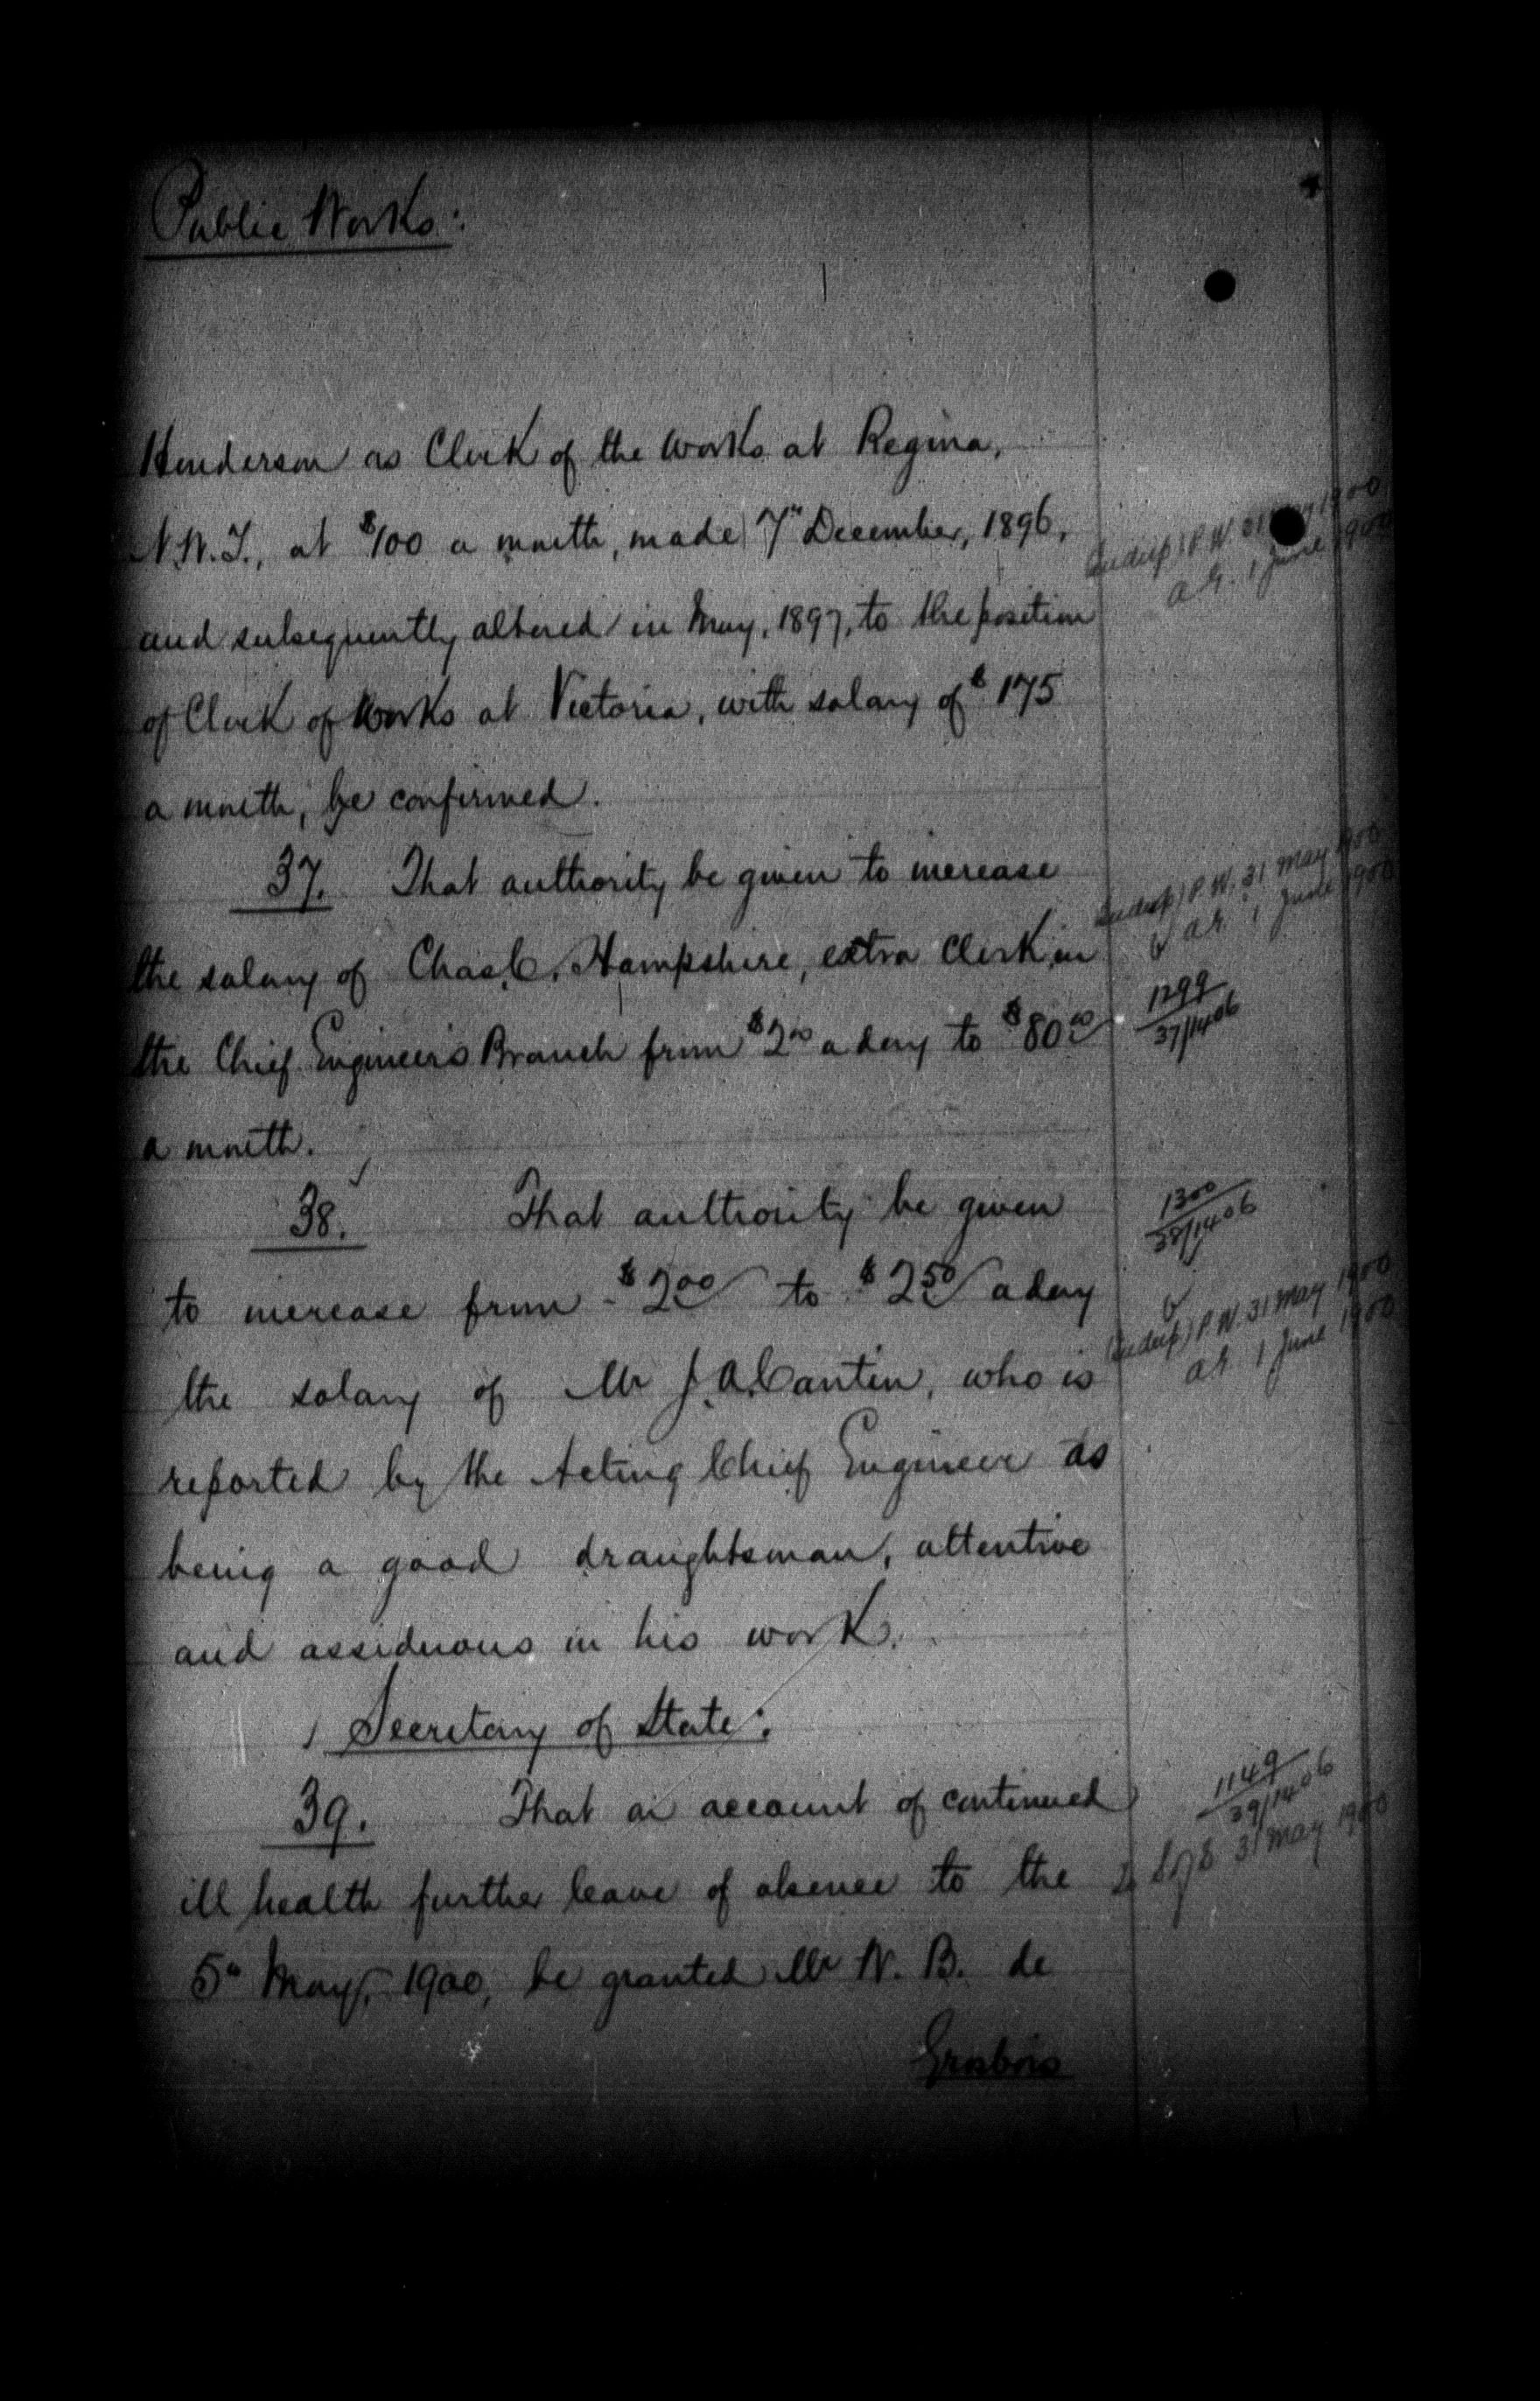 Public Works:
Henderson as Clerk of the Works at Regina,
N.W.T., at $100 a month, made 7" December, 1896,
P.W. 31 May 1900
1 June 1900
and subsequently altered in May, 1897, to the position
of Clerk of Works at Victoria, with salary of $175
a month, be confirmed.
37. That authority be given to increase
P.W. 31 May 1900
1 June 1900
the salary of Chas. C. Hampshire, extra Clerk in
1299
37/1406
the Chief Engineer's Branch from $2.00 a day to $80.00
a month.
38. That authority be given
1300
38/1406
to increase from $2.00 to $2.50 a day
P.W. 31 May 1900
1 June 1900
the salary of Mr J. A. Cantin, who is
reported by the Acting Chief Engineer as
being a good draughtsman, attentive
and assiduous in his work.
Secretary of State:
39. That on account of continued
1149
39/1406
ill health further leave of absence to the
31 May 1900
5" May, 1900, be granted Mr N. B. de
Grosbois